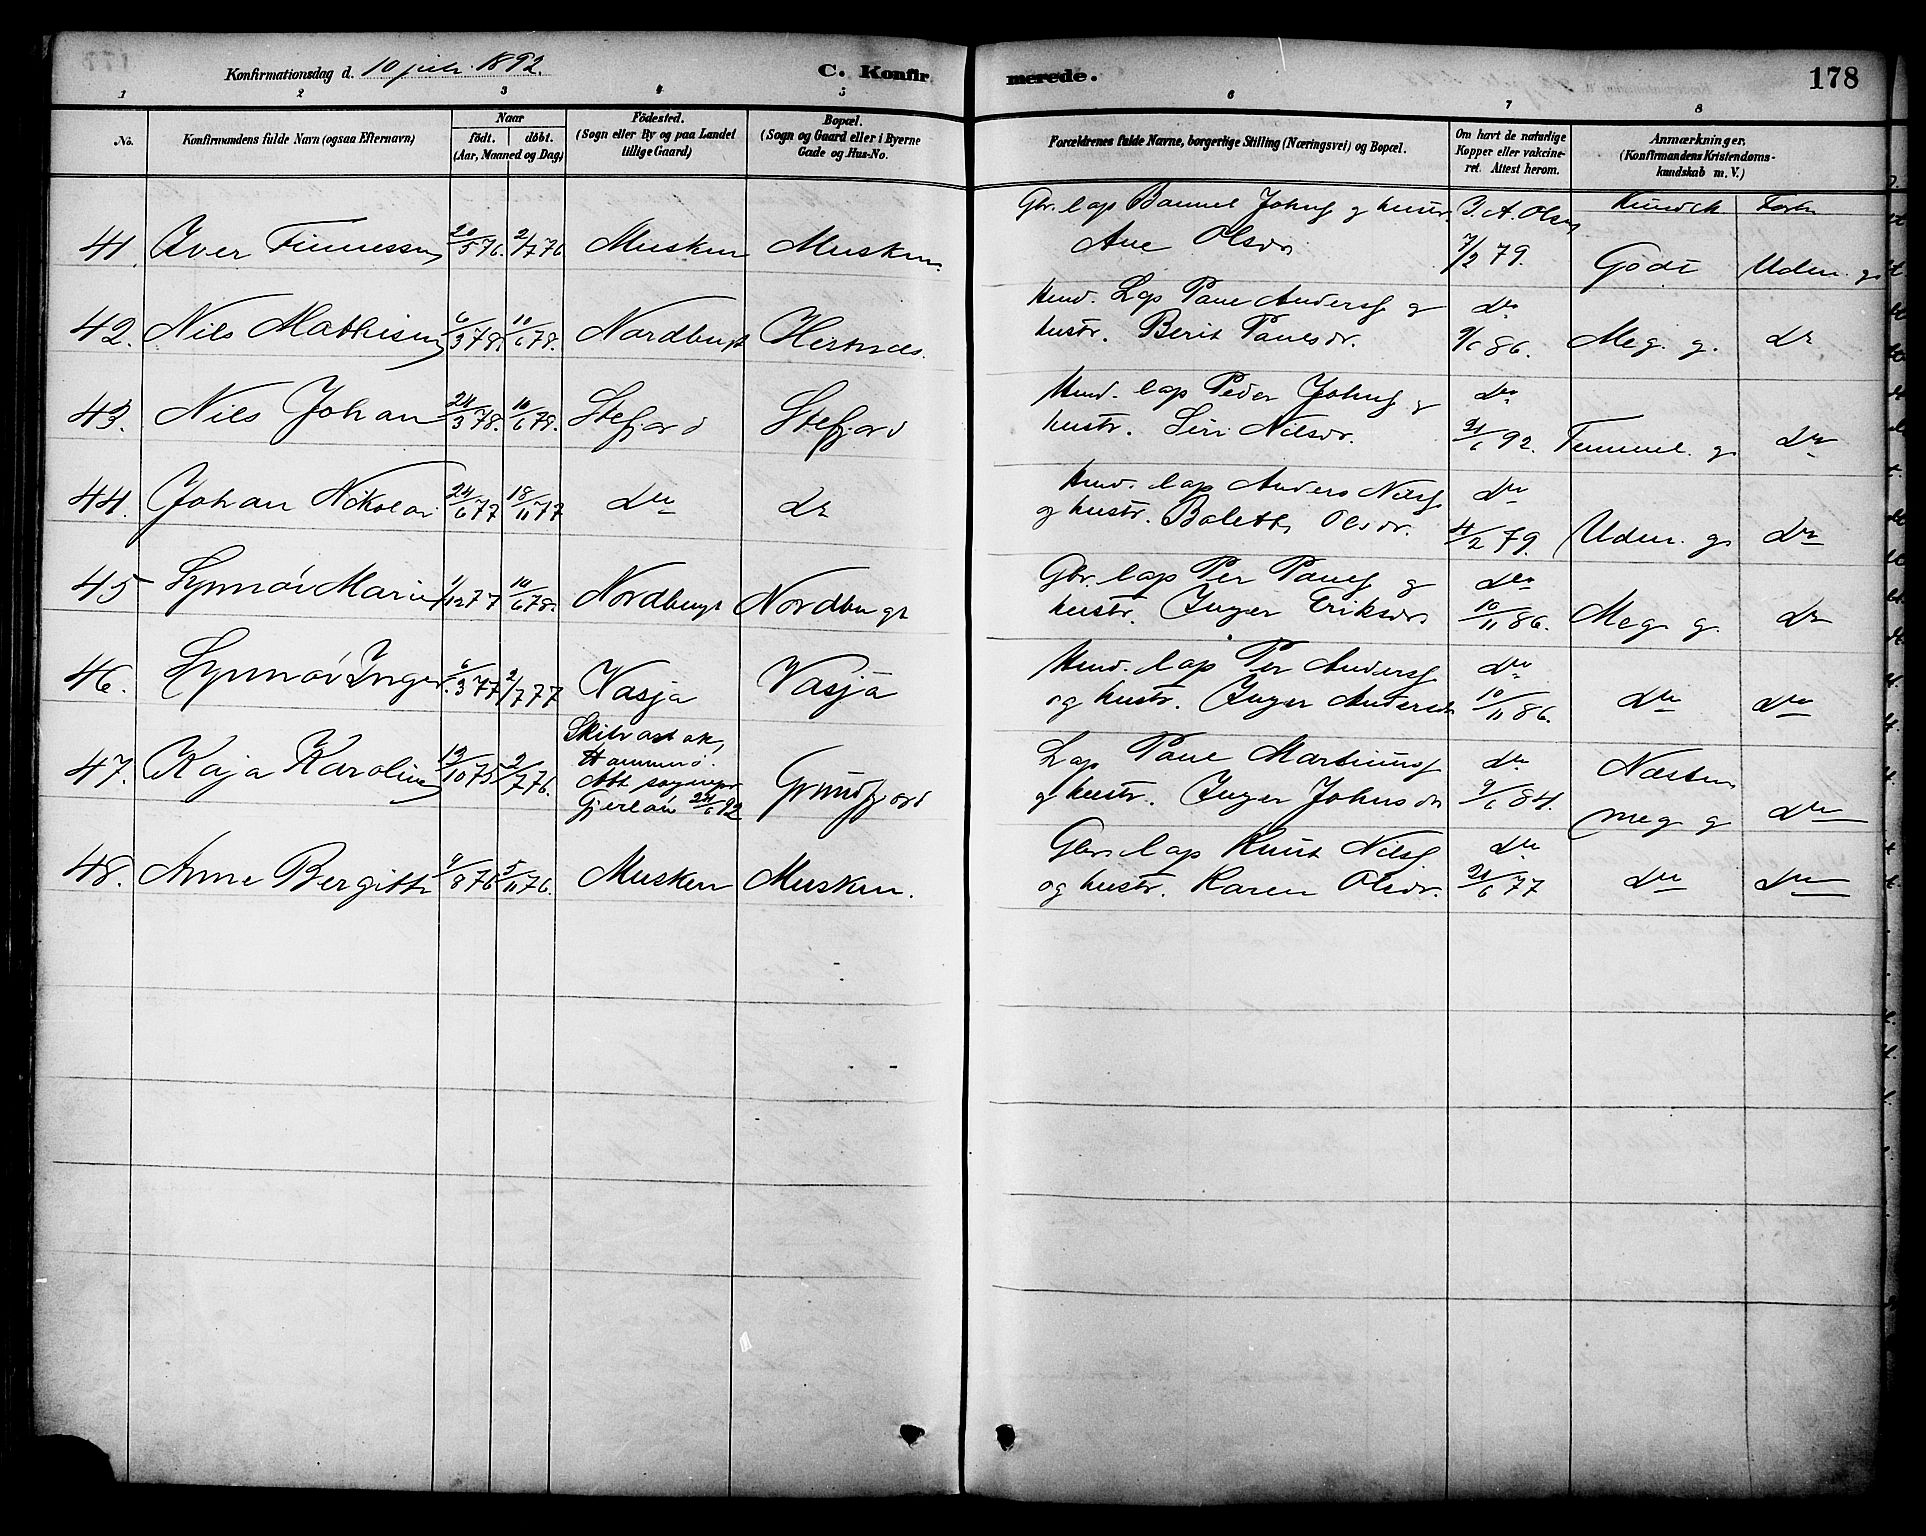 Konfirmationsdag d. 10 juli 1892.
C. Konfirmerede.
178
1 2 3 4 5 6 7 8
No.
Konfirmandens fulde Navn (ogsaa Efternavn)
Naar
födt. döbt.
(Aar, Maaned og Dag)
Födested.
(Sogn eller By og paa Landet
tillige Gaard)
Bopæl.
(Sogn og Gaard eller i Byerne
Gade og Hus-No.
Forældrenes fulde Navne, borgerlige Stilling (Næringsvei) og Bopæl.
Om havt de naturlige
Kopper eller vakcine-
ret. Attest herom.
Anmærkninger.
(Konfirmandens Kristendoms-
kundskab m. V.)
Gbr. lap Johns og hustr.
41. Iver 20/5 76. 2/7 76 Musken Musken
Ane Olsdr 7/2 79. Godt Uden. g
Lap Anders g do
42. Nils Mathisen 6/3 78. 10/6 78. Nordbugt
hustr. Berit Paulsdr. 9/6 86. Meg. g. do
lap Peder Johns g do
43. Nils Johan 24/3 78. 10/6 78. Stefjord Stefjord
hustr. Siri Nilsdr. 21/6 92. Temmel. g do
lap Anders Nils do
44. Johan Nikolai 24/6 77 18/11 77 do do
og hustr. Olsdr. 4/2 79. Uden. g do
Gbr. lap Per g do
45 Synnöi Marie 1/12 77 10/6 78. Nordbugt Nordbugt
hustr. Inger Eriksdr 10/11 86. Meg. g. do
lap Per Anders do
46. Synnöi Inger 6/3 77 2/7 77 Vasja Vasja
og hustr. Inger Andersdr 10/11 86. do do
Lap do
47. Kaja Karoline 12/10 75 2/7 76. Hammerö. 21/6 92 Grundfjord
g hustr. Inger Johnsdr 9/6 84. Næsten
meg g do
Gbr. lap Knut Nils do
48. Anne Bergitte 9/8 76 5/11 76. Musken Musken.
og hustr. Karen Olsdr. 21/6 77 do do